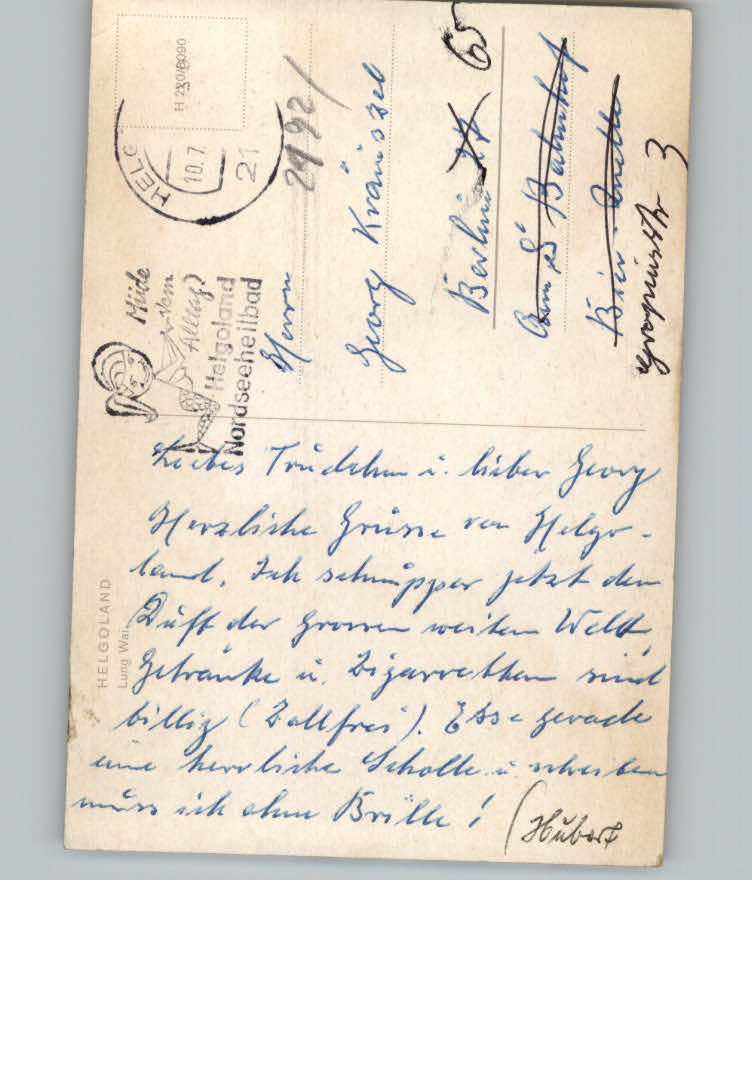 H 220/6090
HELG
10.7.
21
Müde
vom
Alltag?
Helgoland
Nordseeheilbad
2192/
Herrn
Georg Kräuszel
Berlin 65
Bahnhof
Gropiusstr 3
HELGOLAND
Lung Wai
Liebes Trudchen u. lieber Georg
Herzliche Grüsse von Helgo-
land. Ich schnupper jetzt den
Duft der grossen weiten Welt.
Getränke u. Zigarretten sind
billig (Zollfrei). Esse gerade
eine herrliche Scholle u. schreiben
muss ich ohne Brille!
(Hubert